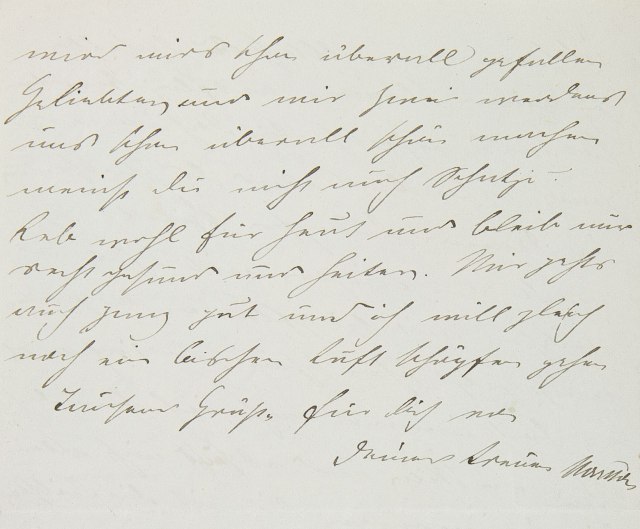 wird mirs schon überall gefallen
Geliebter, und wir zwei werdens
uns schon überall schön machen
meinst du nicht auch Schatzi?
Lebe wohl für heut und bleib nur
recht gesund und heiter. Mir gehts
auch ganz gut und ich will gleich
noch ein bischen Luft schöpfen gehen
Tausend Grüße für dich von
Deiner treuen